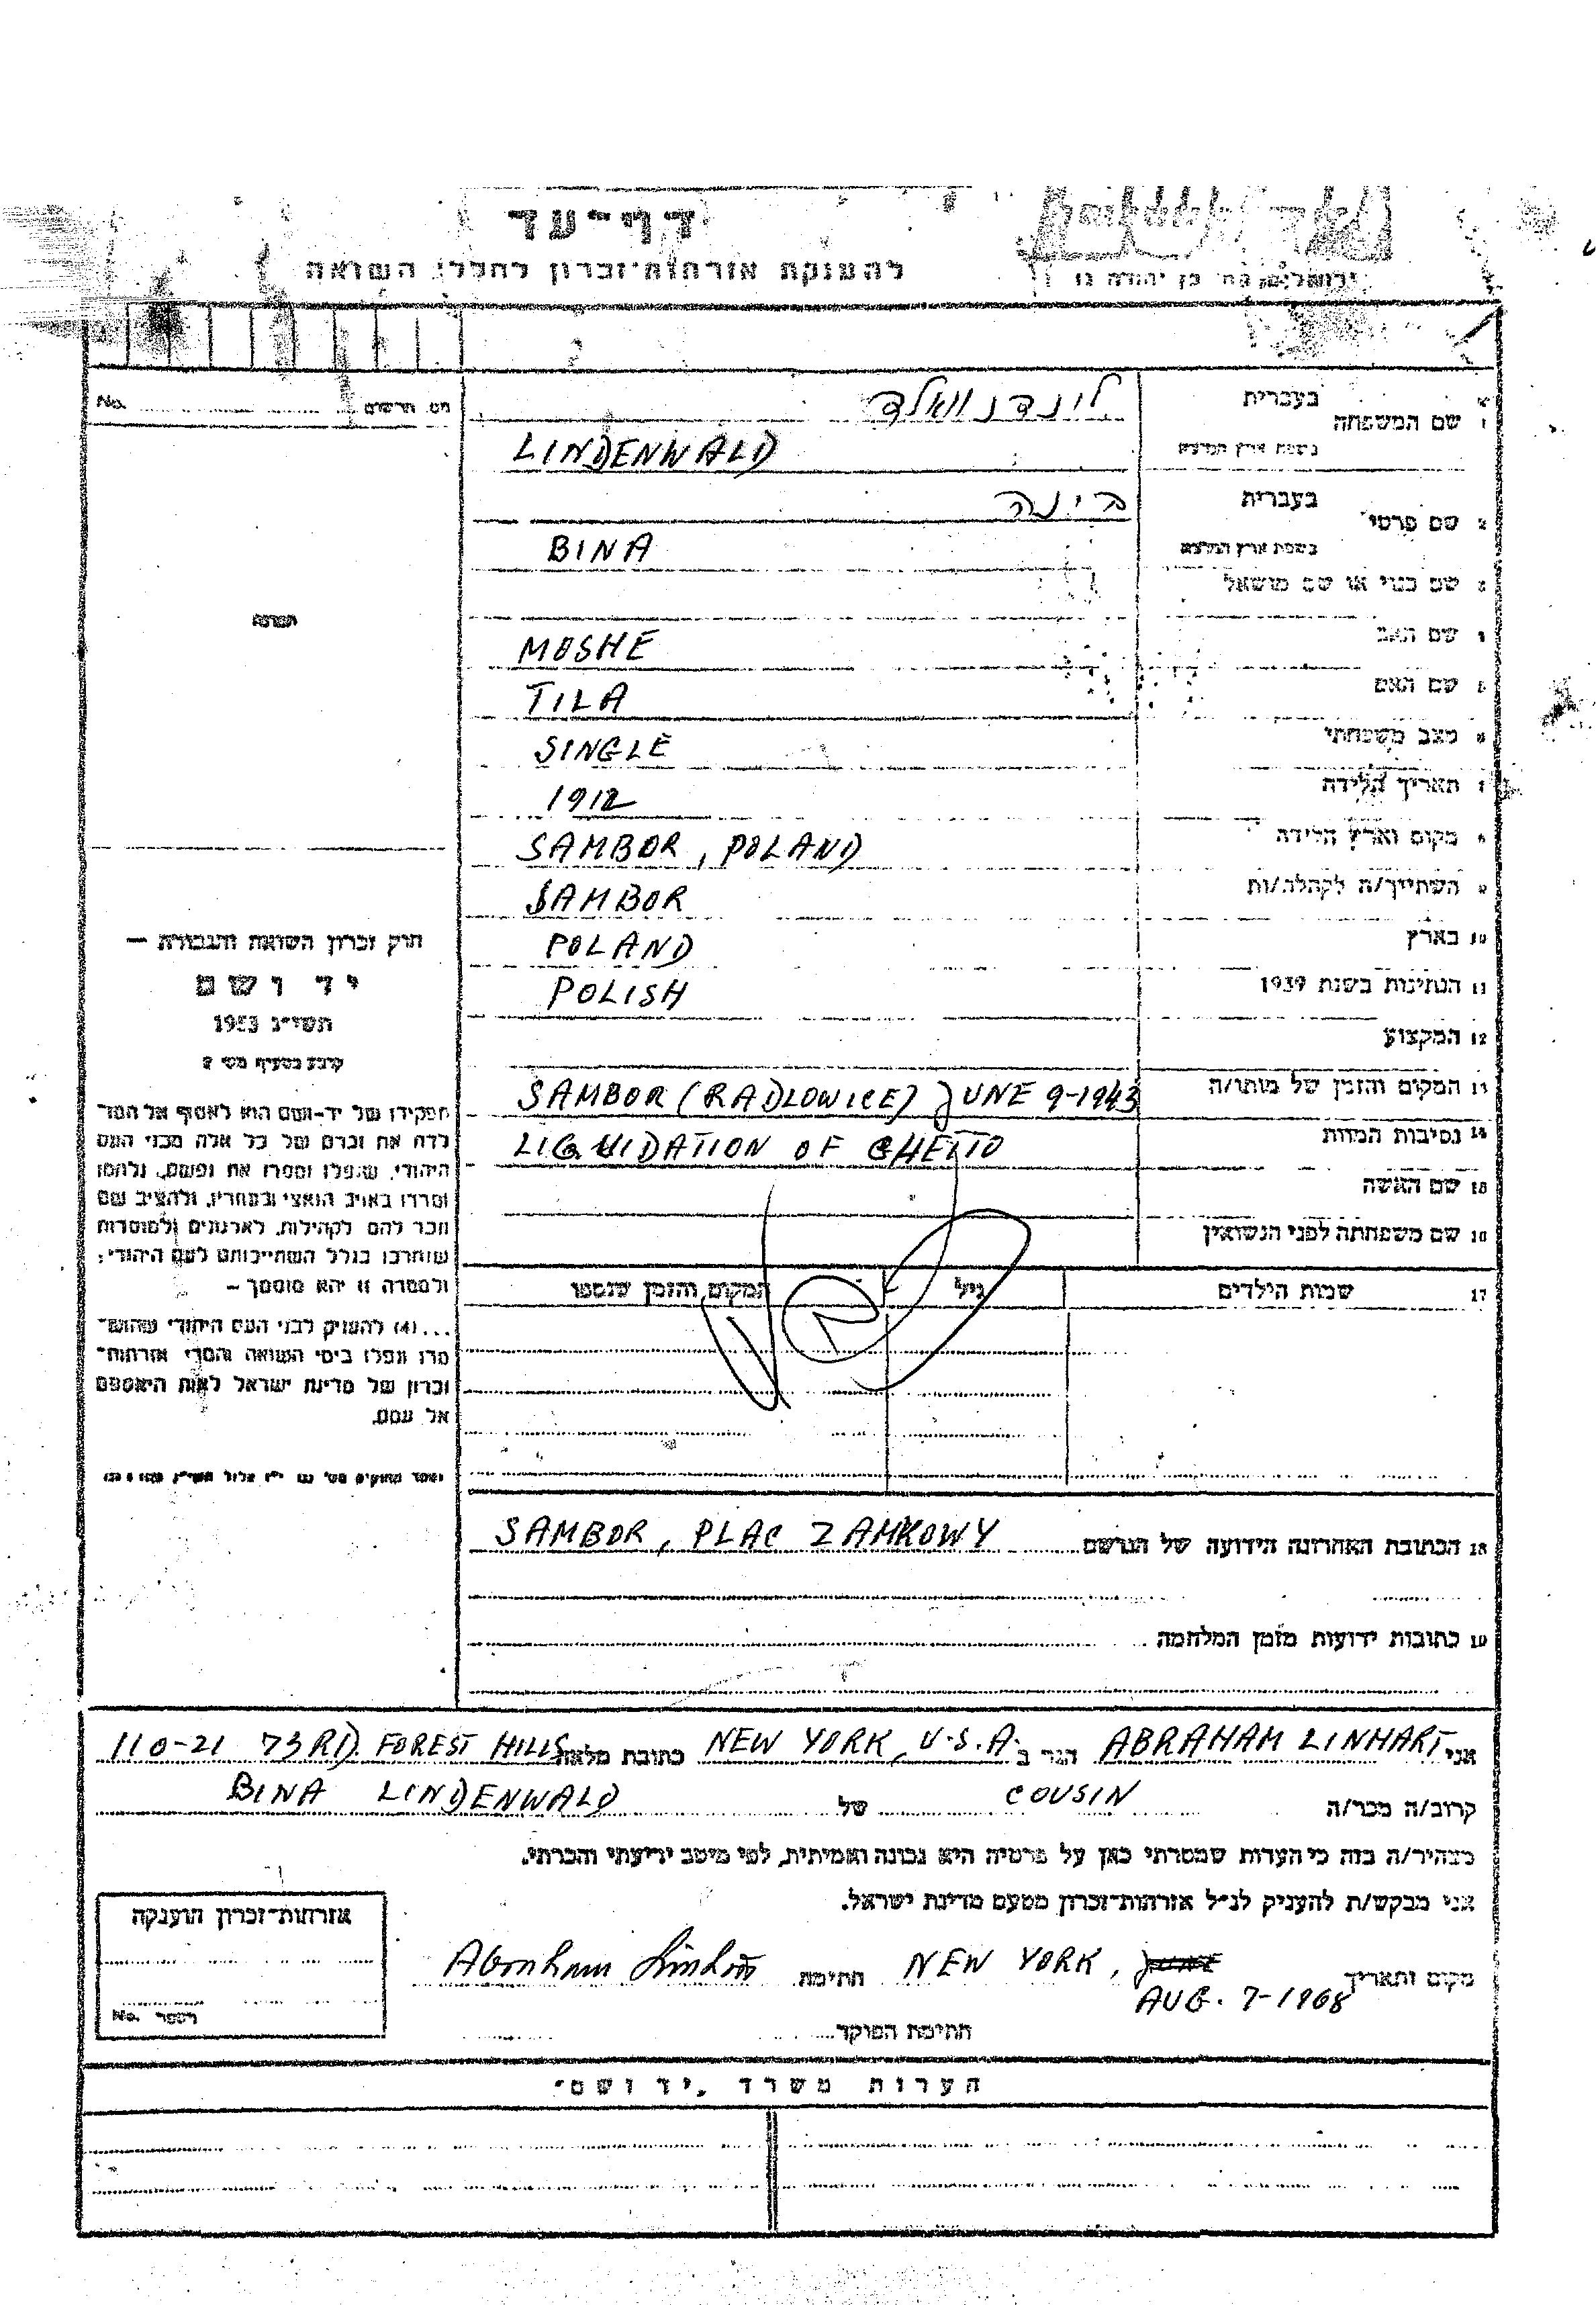 דף-עד
להענקת אזרחות-זכרון לחללי השואה
ירושלים, רח׳ בן יהודה
No. מס. הרשום
1 שם המשפחה בעברית לינדנוואלד
LINDENWALD
2 שם פרטי בעברית בינה
BINA
3 שם כנוי או שם מושאל
4 שם האב MOSHE
5 שם האם TILA
6 מצב משפחתי SINGLE
7 תאריך הלידה 1912
8 מקום וארץ הלידה SAMBOR, POLAND
9 השתייך/ה לקהלה/ות SAMBOR
10 בארץ POLAND
11 הנתינות בשנת 1939 POLISH
12 המקצוע
13 המקום והזמן של מותו/ה SAMBOR (RADLOWICE) JUNE 9-1943
14 נסיבות המות LIQUIDATION OF GHETTO
15 שם האשה
16 שם משפחתה לפני הנשואין
17 שמות הילדים גיל המקום והזמן שנספו
תמונה
חוק זכרון השואה והגבורה –
יד ושם
תשי״ג 1953
קובע בסעיף מס׳ 2
תפקידו של יד-ושם הוא לאסוף אל המו־
לדת את זכרם של כל אלה מבני העם
היהודי, שנפלו ומסרו את נפשם, נלחמו
ומרדו באויב הנאצי ובעוזריו, ולהציב שם
וזכר להם, לקהילות, לארגונים ולמוסדות
שנחרבו בגלל השתייכותם לעם היהודי;
ולמטרה זו יהא מוסמך –
...(4) להעניק לבני העם היהודי שהוש־
מדו ונפלו בימי השואה והמרי אזרחות־
זכרון של מדינת ישראל לאות היאספם
אל עמם.
18 הכתובת האחרונה הידועה של הנרשם SAMBOR, PLAC ZAMKOWY
19 כתובות ידועות מזמן המלחמה
אני ABRAHAM LINHART הגר ב NEW YORK, U.S.A. כתובת מלאה 110-21 73RD. FOREST HILLS
קרוב/ה מכר/ה COUSIN של BINA LINDENWALD
מצהיר/ה בזה כי העדות שמסרתי כאן על פרטיה היא נכונה ואמיתית, לפי מיטב ידיעתי והכרתי.
אני מבקש/ת להעניק לנ״ל אזרחות־זכרון מטעם מדינת ישראל.
מקום ותאריך NEW YORK, JUNE חתימת Abraham Linhart
AUG. 7-1968
חתימת הפוקד
אזרחות־זכרון הוענקה
No. מספר
הערות משרד "יד ושם"